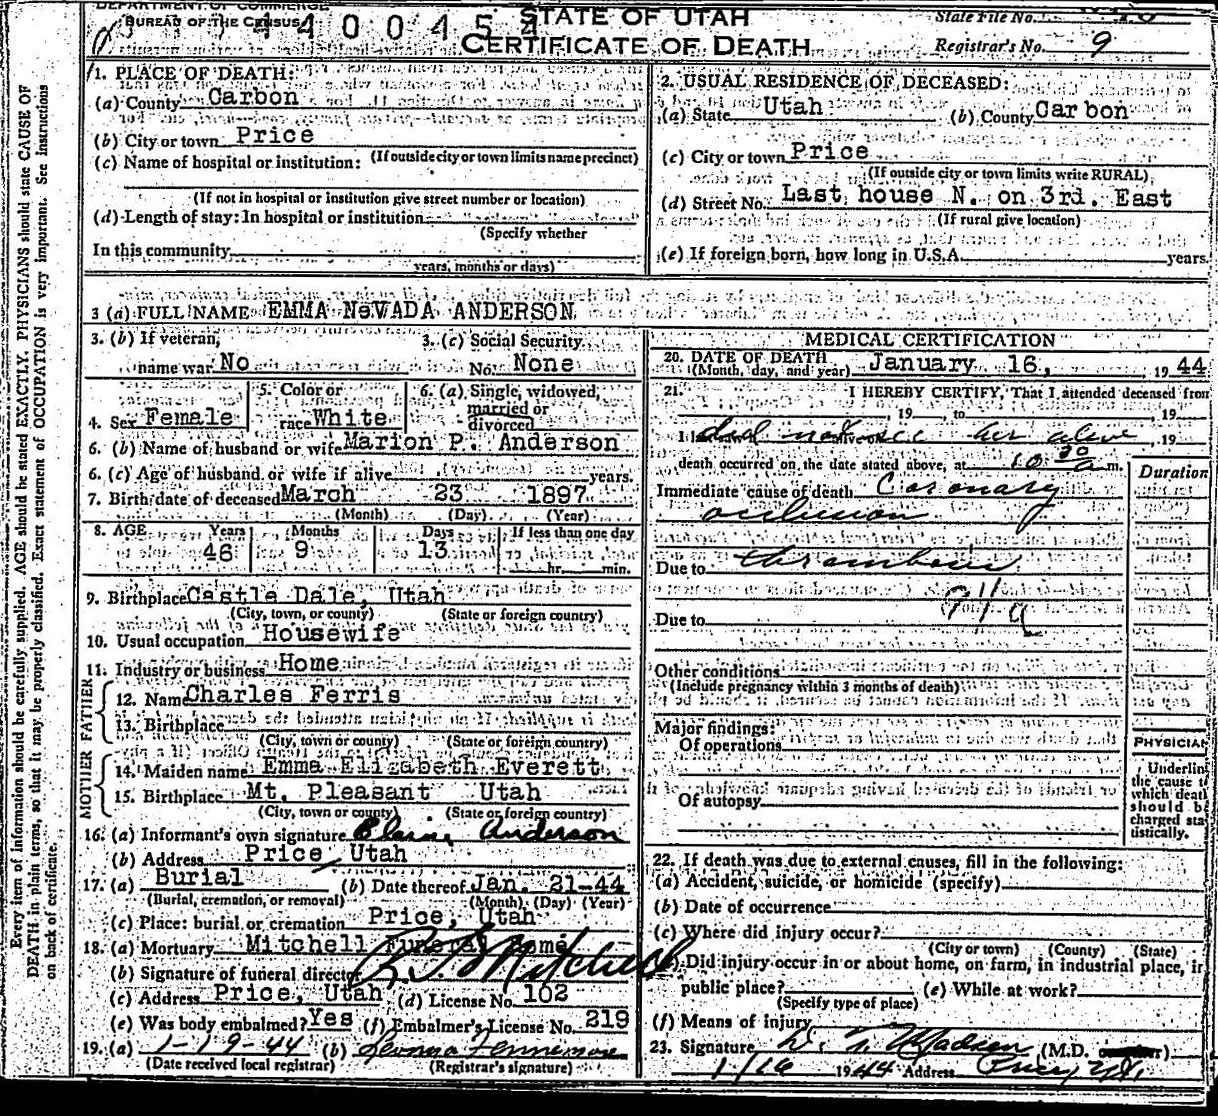 DEPARTMENT OF COMMERCE
BUREAU OF THE CENSUS
STATE OF UTAH
CERTIFICATE OF DEATH
State File No.
Registrar's No. 9
1. PLACE OF DEATH:
(a) County Carbon
(b) City or town Price
(If outside city or town limits name precinct)
(c) Name of hospital or institution:
(If not in hospital or institution give street number or location)
(d) Length of stay: In hospital or institution
(Specify whether
In this community
years, months or days)
2. USUAL RESIDENCE OF DECEASED:
(a) State Utah (b) County Carbon
(c) City or town Price
(If outside city or town limits write RURAL)
(d) Street No. Last house N. on 3rd. East
(If rural give location)
(e) If foreign born, how long in U.S.A. years.
3 (a) FULL NAME EMMA NeVADA ANDERSON
3. (b) If veteran, name war No
3. (c) Social Security No. None
4. Sex Female
5. Color or race White
6. (a) Single, widowed, married or divorced
6. (b) Name of husband or wife Marion P. Anderson
6. (c) Age of husband or wife if alive years.
7. Birth date of deceased March 23 1897
(Month) (Day) (Year)
8. AGE Years Months Days If less than one day
46 9 13 hr. min.
9. Birthplace Castle Dale, Utah
(City, town, or county) (State or foreign country)
10. Usual occupation Housewife
11. Industry or business Home
FATHER
12. Name Charles Ferris
13. Birthplace
(City, town or county) (State or foreign country)
MOTHER
14. Maiden name Emma Elizabeth Everett
15. Birthplace Mt. Pleasant Utah
(City, town or county) (State or foreign country)
16. (a) Informant's own signature Elaine Anderson
(b) Address Price, Utah
17. (a) Burial (b) Date thereof Jan. 21-44
(Burial, cremation, or removal) (Month) (Day) (Year)
(c) Place: burial or cremation Price, Utah
18. (a) Mortuary Mitchell Funeral Home
(b) Signature of funeral director Mitchell
(c) Address Price, Utah (d) License No. 102
(e) Was body embalmed? Yes (f) Embalmer's License No. 219
19. (a) 1-19-44 (b)
(Date received local registrar) (Registrar's signature)
MEDICAL CERTIFICATION
20. DATE OF DEATH January 16, 1944
(Month, day, and year)
21. I HEREBY CERTIFY, That I attended deceased from
, 19 to 19
I did not see her alive , 19
death occurred on the date stated above, at 10 30 a m.
Immediate cause of death Coronary
occlusion
Due to thrombosis
Due to
Other conditions
(Include pregnancy within 3 months of death)
Major findings:
Of operations
Of autopsy
Duration
PHYSICIAN
Underline
the cause to
which death
should be
charged sta
tistically.
22. If death was due to external causes, fill in the following:
(a) Accident, suicide, or homicide (specify)
(b) Date of occurrence
(c) Where did injury occur?
(City or town) (County) (State)
Did injury occur in or about home, on farm, in industrial place, in
public place? (e) While at work?
(Specify type of place)
(f) Means of injury
23. Signature Madsen (M.D.
1/16 1944 Address Price, Ut.
Every item of information should be carefully supplied. AGE should be stated EXACTLY. PHYSICIANS should state CAUSE OF
DEATH in plain terms, so that it may be properly classified. Exact statement of OCCUPATION is very important. See Instructions
on back of certificate.